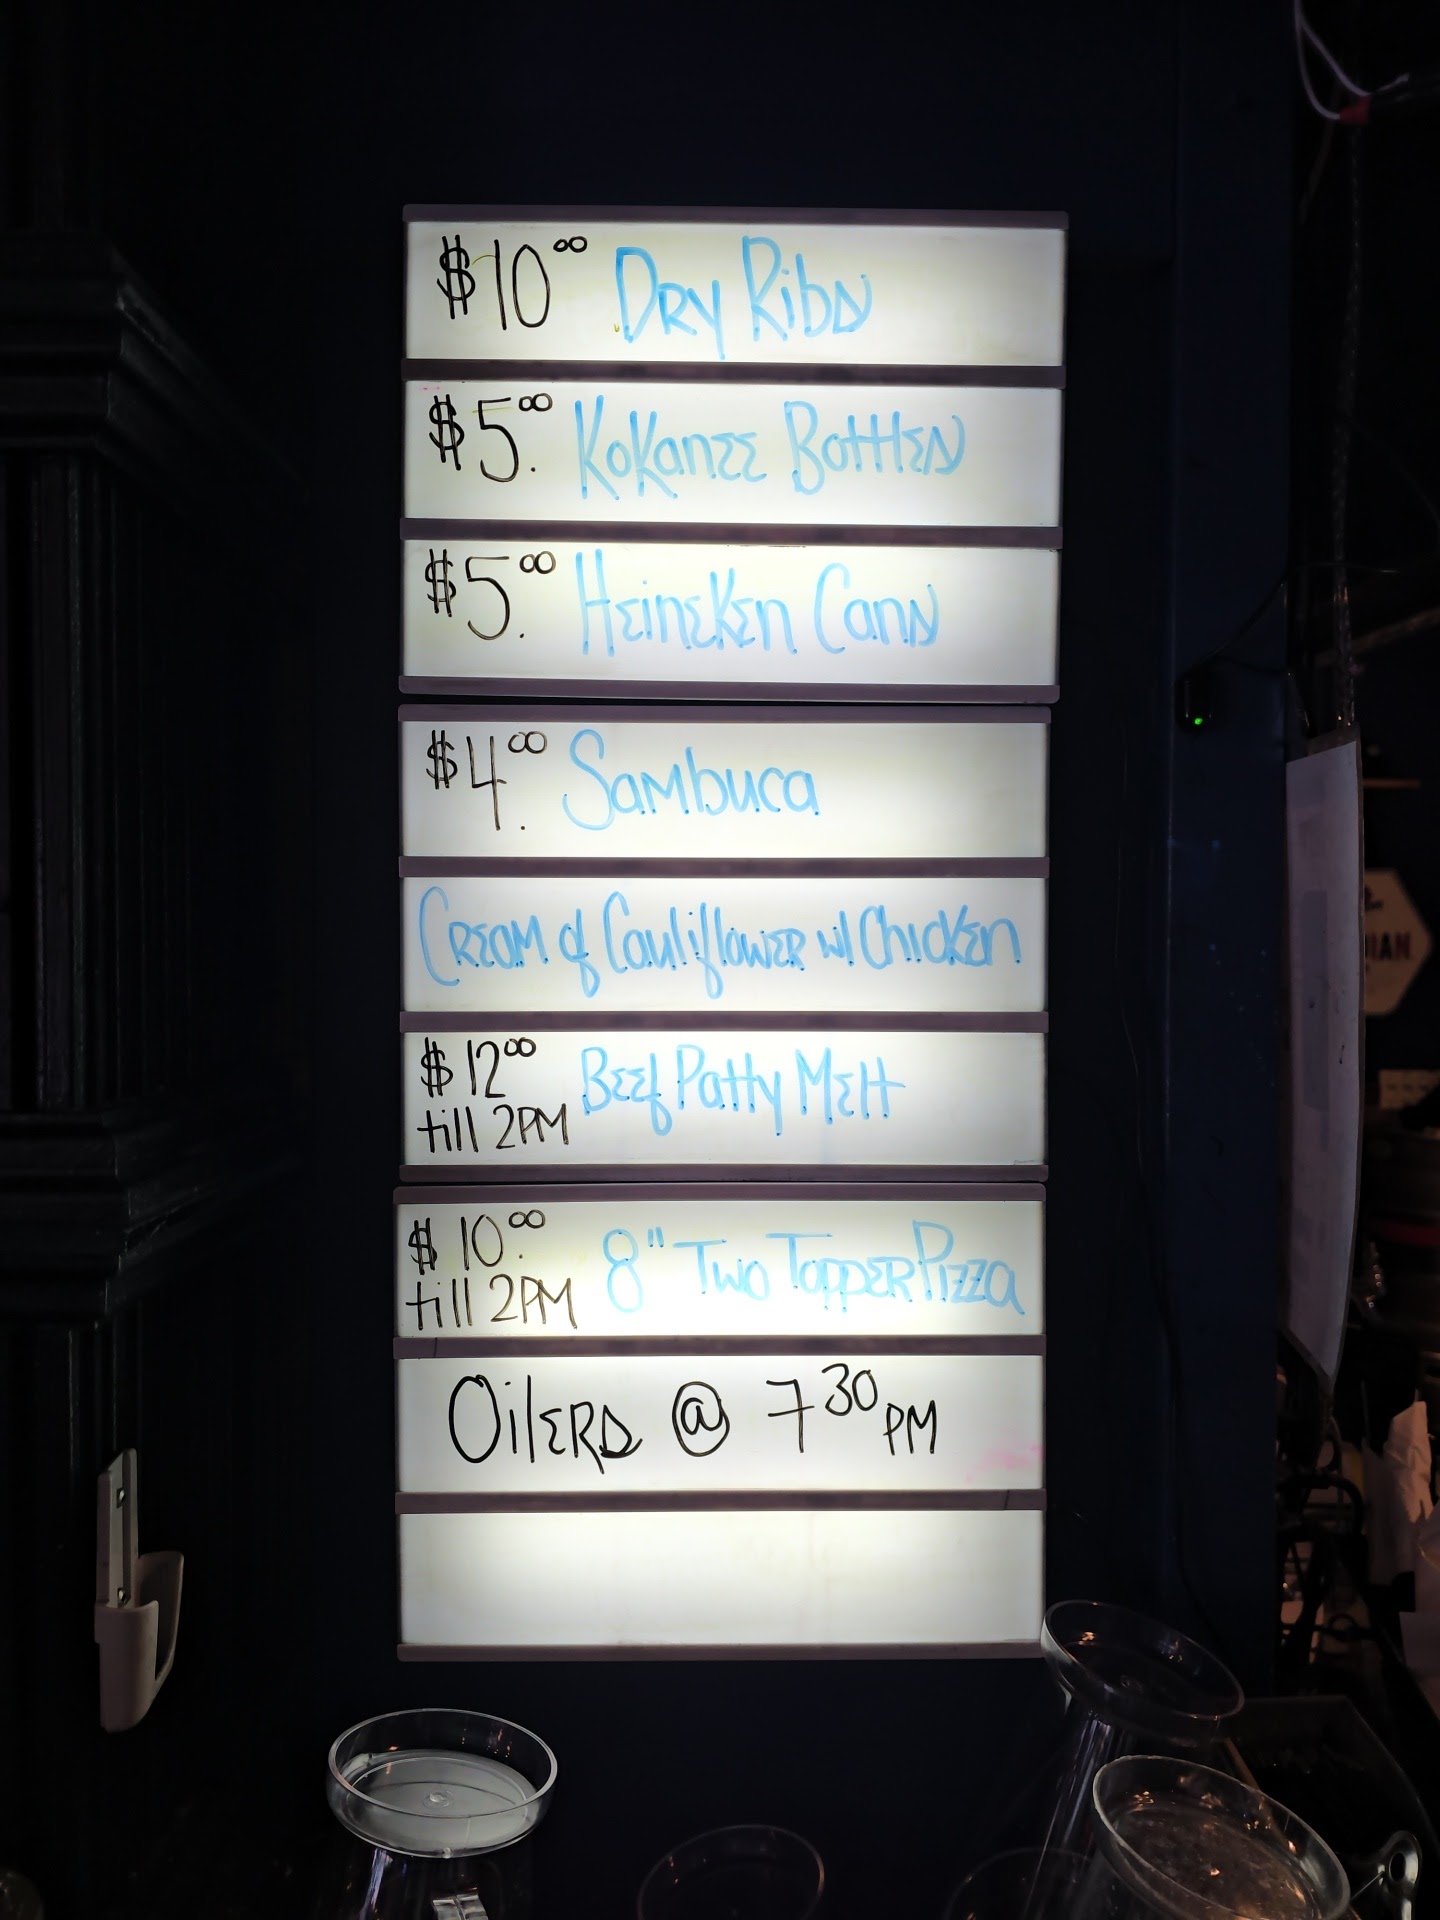 $10.00 Dry Ribs
$5.00 Kokanee Bottles
$5.00 Heineken Cans
$4.00 Sambuca
Cream of Cauliflower w/ Chicken
$12.00 Beef Patty Melt
till 2PM
$10.00 8" Two Topper Pizza
till 2PM
Oilers @ 7 30 PM